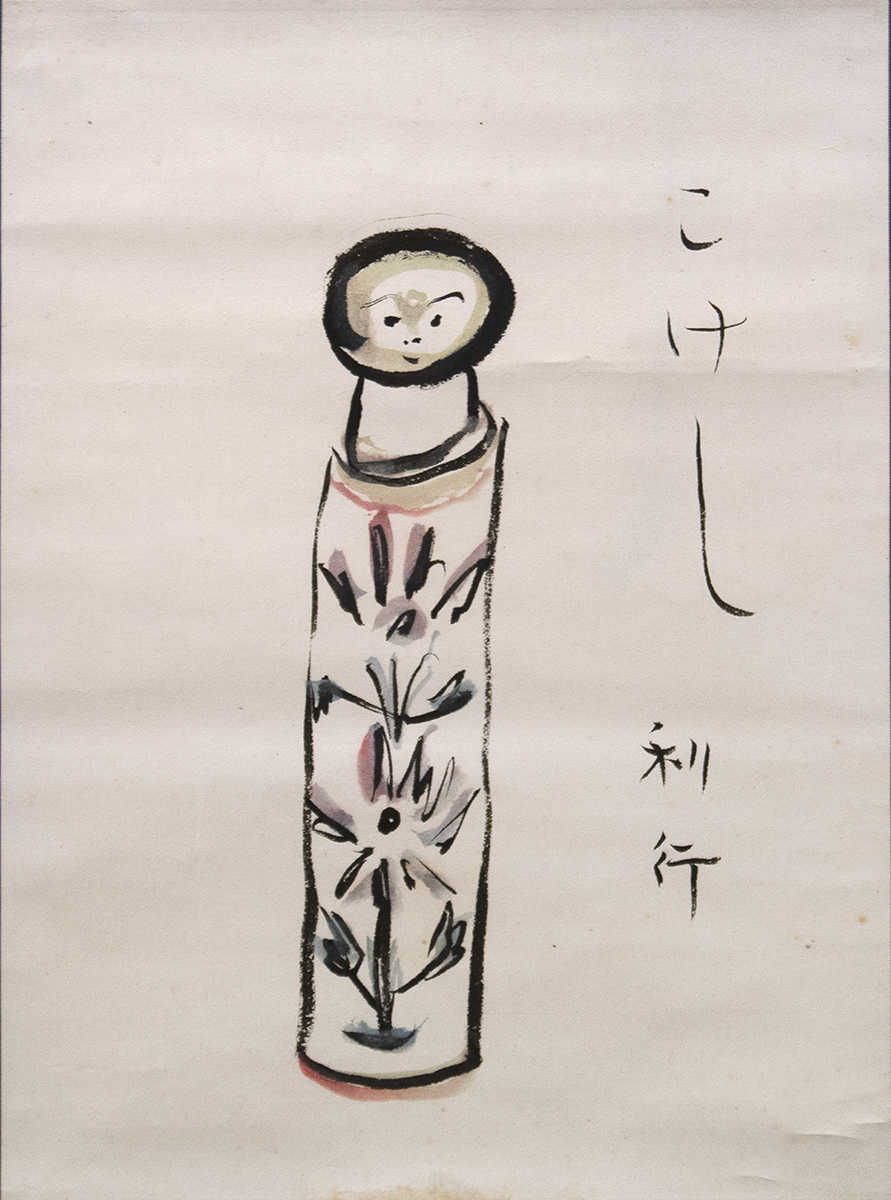 こけし
利行